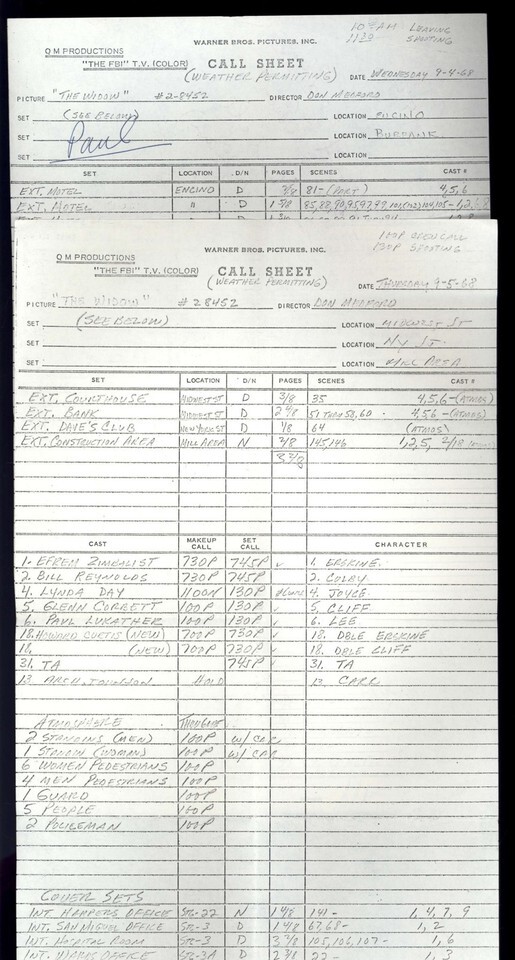 10 AM LEAVING
1130 SPOTTING
WARNER BROS. PICTURES, INC.
Q M PRODUCTIONS
"THE FBI" T.V. (COLOR) CALL SHEET
(WEATHER PERMITTING) DATE WEDNESDAY 9-4-68
PICTURE "THE WIDOW" #28452 DIRECTOR DON MEDFORD
SET (SEE BELOW) LOCATION ENCINO
SET LOCATION BURBANK
SET Paul LOCATION
SET LOCATION D/N PAGES SCENES CAST #
EXT. MOTEL ENCINO D 7/8 81-(PART) 4,5,6
EXT. MOTEL " D
100P CREW CALL
130P SPOTTING
WARNER BROS. PICTURES, INC.
Q M PRODUCTIONS
"THE FBI" T.V. (COLOR) CALL SHEET
(WEATHER PERMITTING) DATE THURSDAY 9-5-68
PICTURE "THE WIDOW" #28452 DIRECTOR DON MEDFORD
SET (SEE BELOW) LOCATION MIDWEST ST
SET LOCATION NY ST.
SET LOCATION MILL AREA
SET LOCATION D/N PAGES SCENES CAST #
EXT. COURTHOUSE MIDWEST ST D 3/8 35 4,5,6-(ATMOS)
EXT. BANK MIDWEST ST D 2 4/8 57 THRU 58,60 4,5,6-(ATMOS)
EXT. DAVE'S CLUB NEW YORK ST D 1/8 64 (ATMOS)
EXT. CONSTRUCTION AREA MILL AREA N 2/8 145,146 1,2,5, 2/18 (ATMOS)
CAST MAKEUP CALL SET CALL CHARACTER
1. EFREM ZIMBALIST 730P 745P 1. ERSKINE
2. BILL REYNOLDS 730P 745P 2. COLBY
4. LYNDA DAY 1100N 130P 4. JOYCE
5. GLENN CORBETT 100P 130P 5. CLIFF
6. PAUL LUKATHER 100P 130P 6. LEE
18. HOWARD CURTIS (NEW) 700P 730P 18. DBLE ERSKINE
18. (NEW) 700P 730P 18. DBLE CLIFF
31. TA 745P 31. TA
13. ARCH JOHNSON HOLD 13. CARR
ATMOSPHERE THOUGHT
2 STANDINS (MEN) 100P W/ CAR
1 STANDIN (WOMAN) 100P W/ CAR
6 WOMEN PEDESTRIANS 100P
4 MEN PEDESTRIANS 100P
1 GUARD 100P
5 PEOPLE 100P
2 POLICEMAN 100P
COVER SETS
INT. HARPERS OFFICE STG-22 N 1 4/8 141- 1, 4, 7, 9
INT. SAN MIGUEL OFFICE STG-3 D 1 4/8 67,68- 1, 2
INT. HOSPITAL ROOM STG-3 D 3 7/8 105,106,107- 1, 6
OFFICE STG-3A D 2 3/8 22- 1, 3